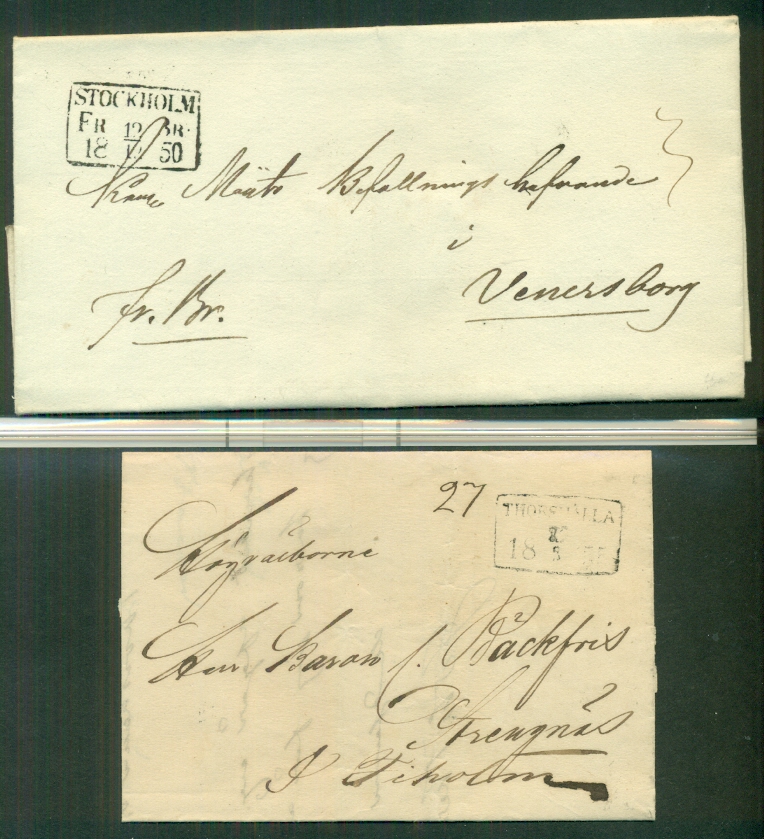 STOCKHOLM
FR 12 BR.
18 12 50
Befallningshafvande
i
Fr. Br.
Venersborg
27
THORSHÄLLA
18 55
Högvälborne
Herr Baron C. Bäckfris
Strengnäs
Fiholm